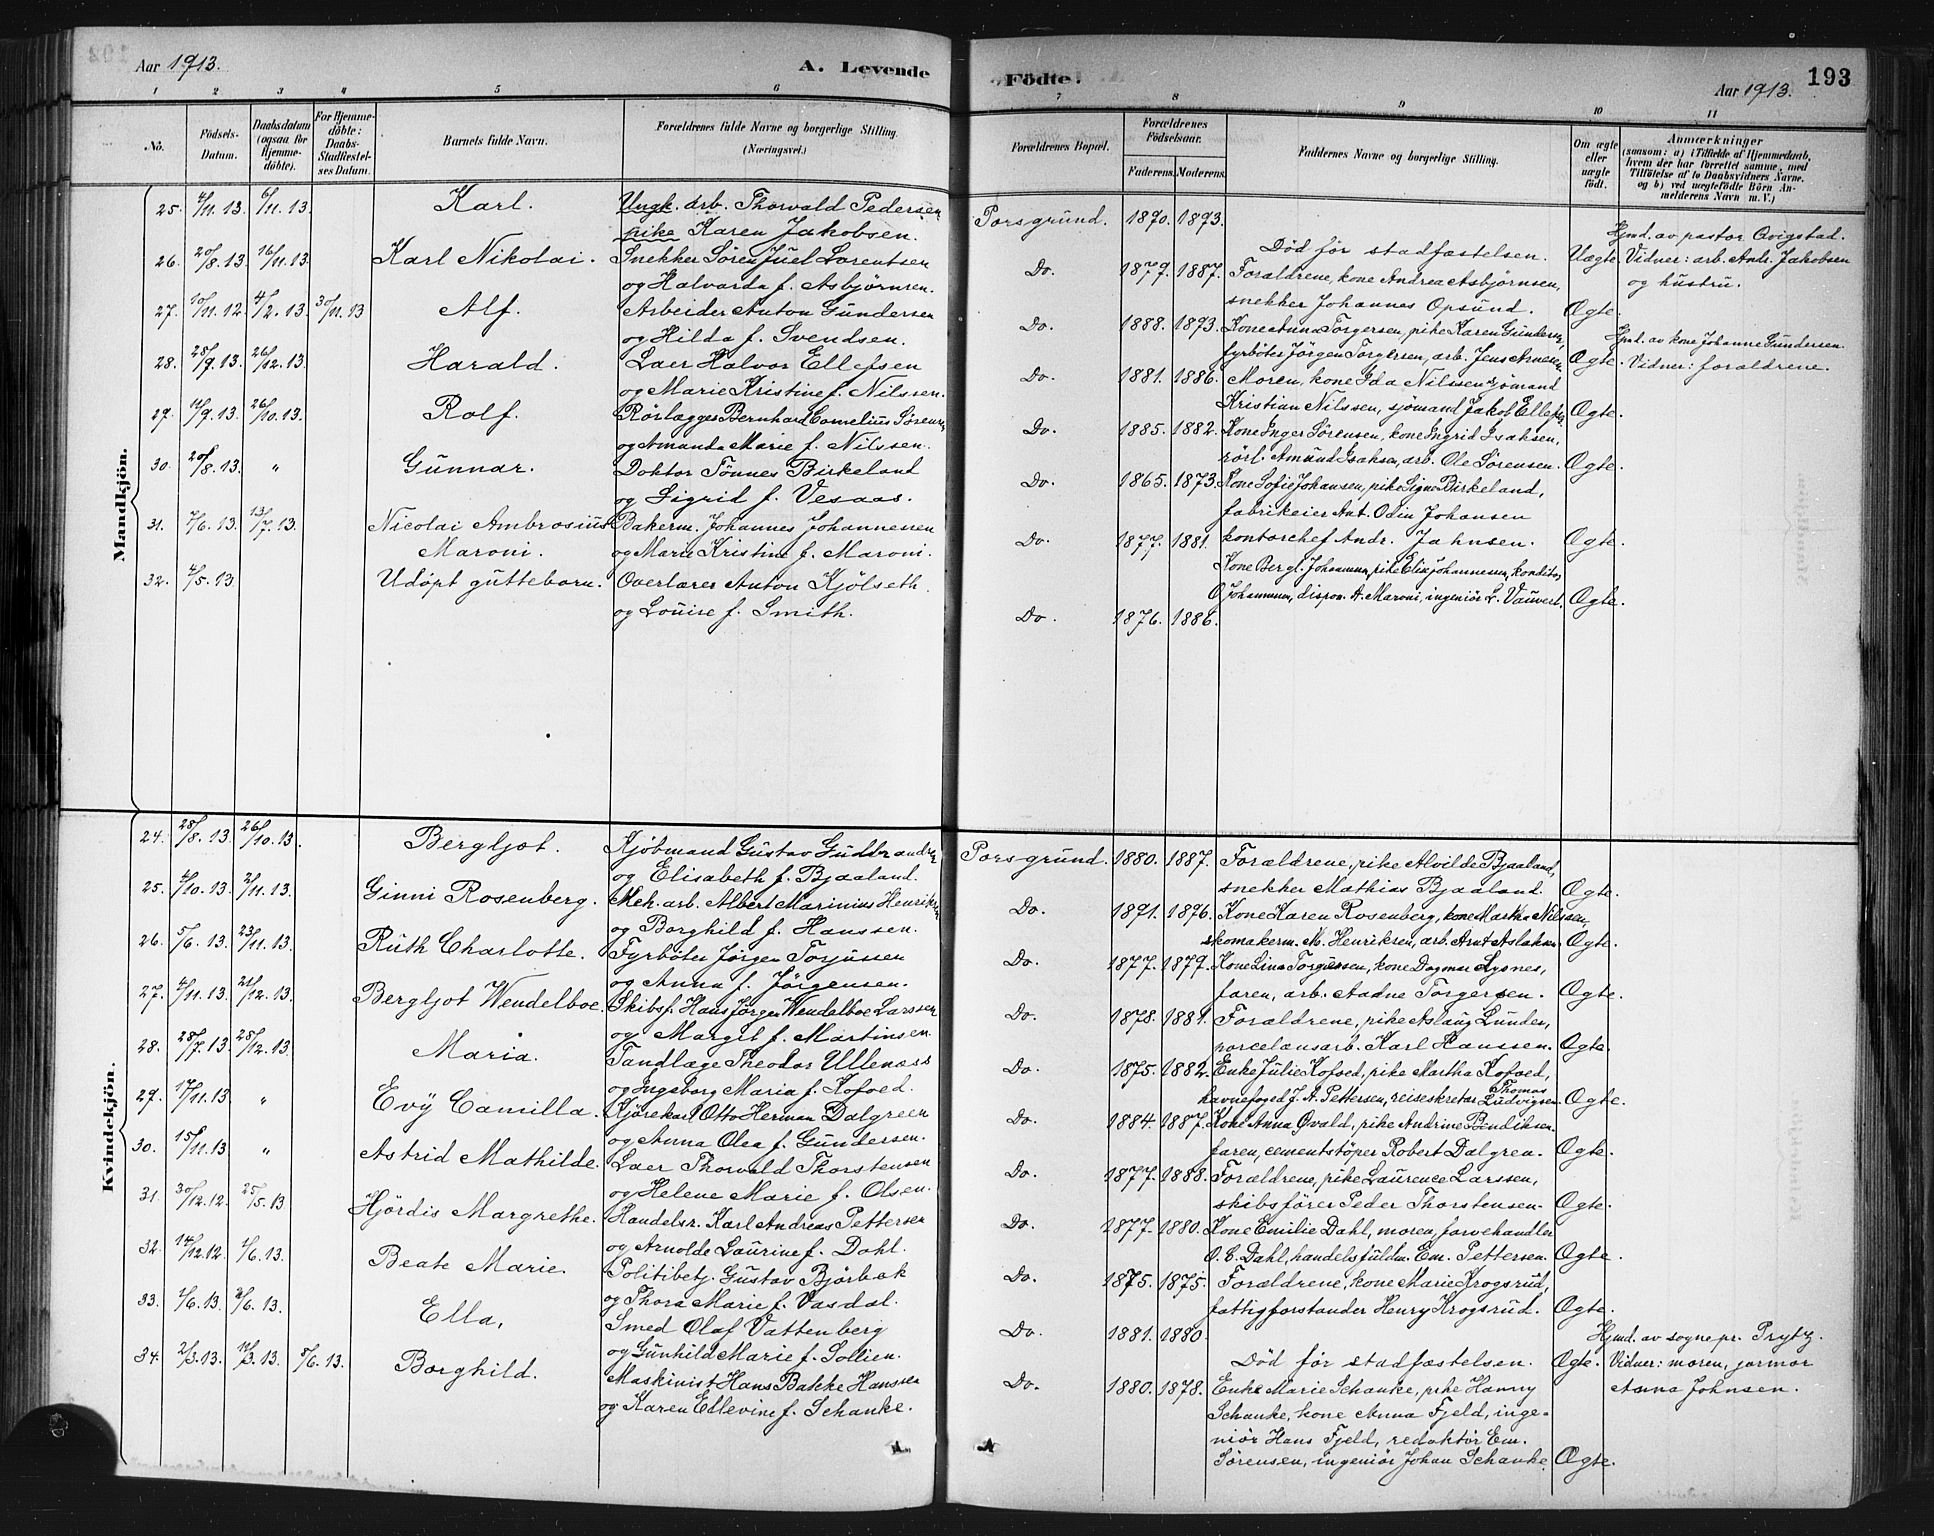 Aar 1913.
A. Levende
1 2 3 4 5 6
No.
Födsels-Datum.
Daabsdatum (ogsaa for Hjemmedöbte).
For Hjemmedöbte: Daabs-Stadfæstelses Datum.
Barnets fulde Navn.
Forældrenes fulde Navne og borgerlige Stilling.
(Næringsvei.)
Mandkjön.
25. 4/11. 13. 6/11. 13. Karl. Ungk. arb. Thorvald Pedersen
pike Karen Jakobsen.
26. 20/8. 13. 16/11. 13. Karl Nikolai. Snekker Sören Juel Lorentsen
og Halvarda f. Asbjørnsen.
27. 10/11. 12. 4/2. 13. 30/11. 13 Alf. Arbeider Anton Gundersen
og Hilda f. Svendsen.
28. 28/9. 13. 26/12. 13. Harald. Laer Halvor Ellefsen
og Marie Kristine f. Nilssen.
29. 11/9. 13. 26/10. 13. Rolf. Rörlægges Bernhard Cornelius Sörensen
og Amanda Marie f. Nilssen.
30. 20/8. 13. " Gunnar. Doktor Tönnes Birkeland
og Sigrid f. Vesaas.
31. 7/6. 13. 13/7. 13. Nicolai Ambrosius Bakerm. Johannes Johannessen
Maroni. og Marie Kristine f. Maroni.
32. 4/5. 13. Udöpt guttebarn. Overlærer Anton Kjölseth
og Louise f. Smith.
Kvindekjön.
24. 28/8. 13. 26/10. 13. Bergljot. Kjöbmand Gustav Gudbrandsen
og Elisabeth f. Bjaaland.
25. 4/10. 13. 2/11. 13. Ginni Rosenberg. Mek. arb. Albert Marinius Henriksen
og Borghild f. Hanssen.
26. 5/6. 13. 23/11. 13. Ruth Charlotte. Fyrböter Jörgen Torjussen
og Anna f. Jörgensen.
27. 4/11. 13. 21/12. 13. Bergljot Wendelboe. Skibsf. Hans Jörgen Wendelboe Larssen
og Margit f. Martinsen.
28. 28/7. 13. 28/12. 13. Maria. Tandlæge Theodor Ullenæss
og Ingeborg Maria f. Kofoed.
29. 17/11. 13. " Evÿ Camilla. Kjörekarl Otto Herman Dalgreen
og Anna Olea f. Gundersen.
30. 15/11. 13 " Astrid Mathilde. Laer Thorvald Thorstensen
og Helene Marie f. Olsen.
31. 30/12. 12. 25/5. 13 Hjördis Margrethe. Handelsr. Karl Andreas Pettersen
og Arnolde Laurine f. Dahl.
32. 14/12. 12. 1/6. 13. Beate Marie. Politibetj. Gustav Björbæk
og Thora Marie f. Vasdal.
33. 1/6. 13. 3/6. 13. Ella, Smed Olaf Vattenberg
og Gunhild Marie f. Sollien.
34. 2/3. 13. 11/3. 13. 5/6. 13. Borghild. Maskinist Hans Bakke Hanssen
og Karen Edlevine f. Schanke.
A.
Födte.
Aar 1913.
193
7 8 9 10 11
Forældrenes Bopæl.
Forældrenes Födselsaar.
Faderens. Moderens.
Faddernes Navne og borgerlige Stilling.
Om ægte eller uægte födt.
Anmærkninger
(saasom: a) i Tilfælde af Hjemmedaab, hvem der har forrettet samme, med Tilföielse af to Daabsvidners Navne, og b) ved uægtefödte Börn Anmelderens Navn m. V.)
Porsgrund. 1890. 1893. Hjmd. av pastor Qvigstad.
Död för stadfæstelsen. Uægte. Vidner: arb. Andr. Jakobsen
Do. 1877. 1887. Forældrene, kone Andrea Asbjörnsen, og hustru.
snekker Johannes Opsund. Ægte.
Do. 1888. 1893. Kone Anna Torgersen, pike Karen Gundersen, Hjmd. av kone Johanne Gundersen.
fyrböter Jörgen Torgersen, arb. Jens Arnesen Ægte. Vidner: forældrene.
Do. 1881. 1886. Moren, kone Ida Nilssen, sjömand
Kristian Nilssen, sjömand Jakob Ellefsen Ægte.
Do. 1885. 1882. Kone Inger Sörensen, kone Ingrid Isaksen,
rörl. Amund Isaksen, arb. Ole Sörensen. Ægte.
Do. 1865. 1873. Kone Sofie Johansen, pike Signe Birkeland,
fabrikeier Ant. Odin Johansen
Do. 1877. 1881. kontorchef Andr. Jahnsen. Ægte.
Kone Bergl. Johannesen, pike Elise Johannessen, konditor
O Johannessen, dispon. A. Maroni, ingeniör L. Vauvert. Ægte.
Do. 1876. 1886.
Porsgrund. 1880. 1887. Forældrene, pike Alvilde Bjaaland,
snekker Mathias Bjaaland Ægte.
Do. 1891. 1896. Kone Karen Rosenberg, kone Martha Nilssen,
skomakerm. M. Henriksen, arb. Arnt Aslaksen. Ægte.
Do. 1877. 1879. Kone Lina Torgersen, kone Dagmar Lysnes,
faren, arb. Aadne Torgersen. Ægte.
Do. 1878. 1881. Forældrene, pike Aslaug Lunder,
porcelænsarb. Karl Hanssen. Ægte.
Do. 1875. 1882. Enke Julie Kofoed, pike Martha Kofoed,
havnefoged J. A. Pettersen, reisesekretær Thomas Ludvigsen Ægte.
Do. 1884. 1887. Kone Anna Qvald, pike Andrine Bendiksen
faren, cementstöper Robert Dalgren. Ægte.
Do. 1877. 1888. Forældrene, pike Laurence Larssen,
skibsförer Peder Thorstensen. Ægte.
Do. 1877. 1880. Kone Emilie Dahl, moren, farvehandler
O. C. Dahl, handelsfuldm. Em. Pettersen. Ægte.
Do. 1875. 1875. Forældrene, kone Marie Krogsrud,
fattigforstander Henry Krogsrud. Ægte.
Do. 1881. 1880. Hjmd. av sognepr. Prytz.
Död för stadfæstelsen. Ægte. Vidner: moren, jormor
Do. 1880. 1878. Enke Marie Schanke, pike Hanny Anna Johnsen.
Schanke, kone Anna Fjeld, inge-
niör Hans Fjeld, redaktör Em.
Sörensen, ingeniör Johan Schanke. Ægte.
A